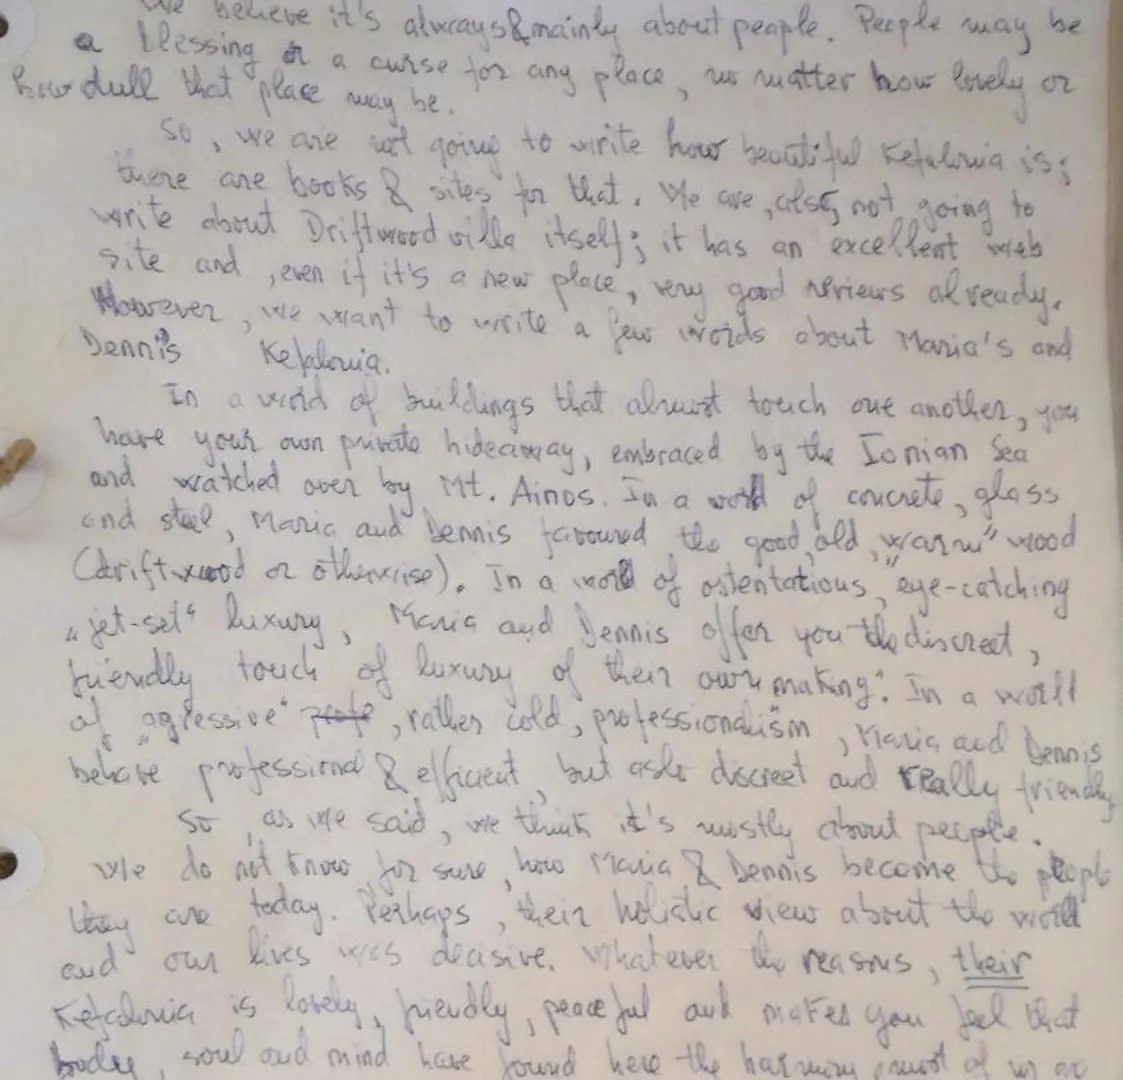 We believe it's always&mainly about people. People may be
a blessing or a curse for any place, no matter how lovely or
how dull that place may be.
So, we are not going to write how beautiful Kefalonia is;
there are books & sites for that. We are, also, not going to
write about Driftwood villa itself; it has an excellent web
site and, even if it's a new place, very good reviews already.
However, we want to write a few words about Maria's and
Dennis' Kefalonia.
In a world of buildings that almost touch one another, you
have your own private hideaway, embraced by the Ionian Sea
and watched over by Mt. Ainos. In a world of concrete, glass
and steel, Maria and Dennis favoured the good, old, „warm" wood
(driftwood or otherwise). In a world of ostentatious, eye-catching
„jet-set" luxury, Maria and Dennis offer you the discreet,
friendly touch of luxury of their own making". In a world
of „agressive", rather cold, professionalism, Maria and Dennis
behave professional & efficient, but also discreet and really friendly.
So, as we said, we think it's mostly about people.
We do not know for sure, how Maria & Dennis become the people
they are today. Perhaps, their holistic view about the world
and our lives was decisive. Whatever the reasons, their
Kefalonia is lovely, friendly, peaceful and makes you feel that
body, soul and mind have found here the harmony most of us